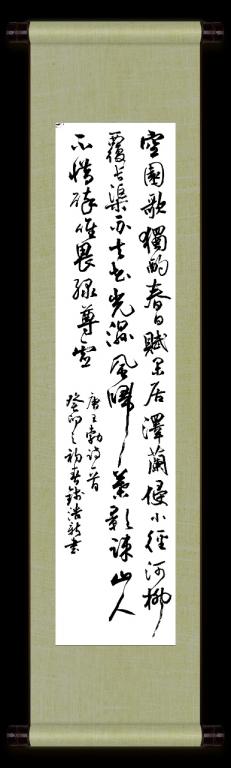 空園歌獨酌春日賦閑居澤蘭侵小徑河柳
覆長渠雨去花光濕風歸葉影疎山人
不惜醉唯畏綠尊虛
唐王勃詩一首
癸卯之初春浩新書